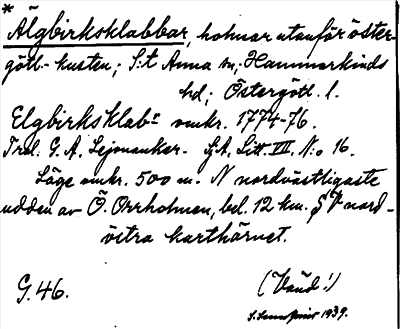 *
Älgbirksklabbar, holmar utanför öster-
götl.-kusten; S:t Anna sn, Hammarkinds
hd; Östergötl. l.
Elgbirksklab:r omkr. 1774-76.
G. A. Lejonanker. Litt. VII N:o 16.
Läge omkr. 500 m. N nordvästligaste
udden av Ö. Orrholmen, bel. 12 km. SV nord-
östra karthörnet.
G. 46. (Vänd!)
1939.